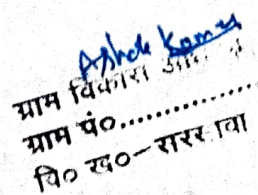 Ashok Kumar
ग्राम विकास
ग्राम पं०..............
वि० ख०-